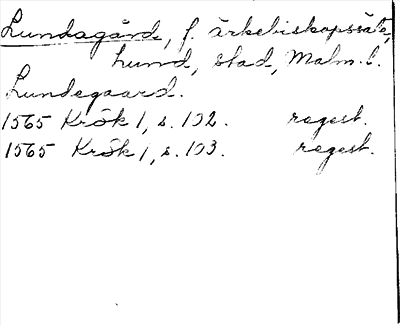 Lundagård, f. ärkebiskopssäte,
Lund, stad, Malm. l.
Lundegaard.
1565 KrSk 1, s. 102. regest.
1565 KrSk 1, s. 103. regest.